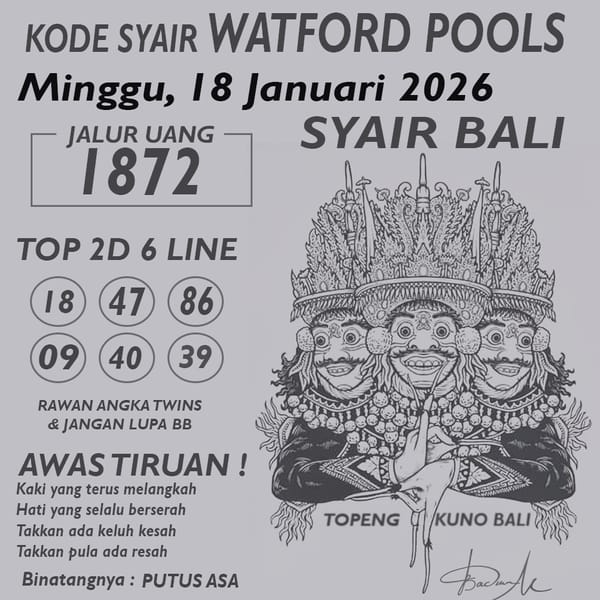 KODE SYAIR WATFORD POOLS
Minggu, 18 Januari 2026
JALUR UANG
1872
SYAIR BALI
TOP 2D 6 LINE
18 47 86
09 40 39
RAWAN ANGKA TWINS
& JANGAN LUPA BB
AWAS TIRUAN !
Kaki yang terus melangkah
Hati yang selalu berserah
Takkan ada keluh kesah
Takkan pula ada resah
Binatangnya : PUTUS ASA
TOPENG KUNO BALI